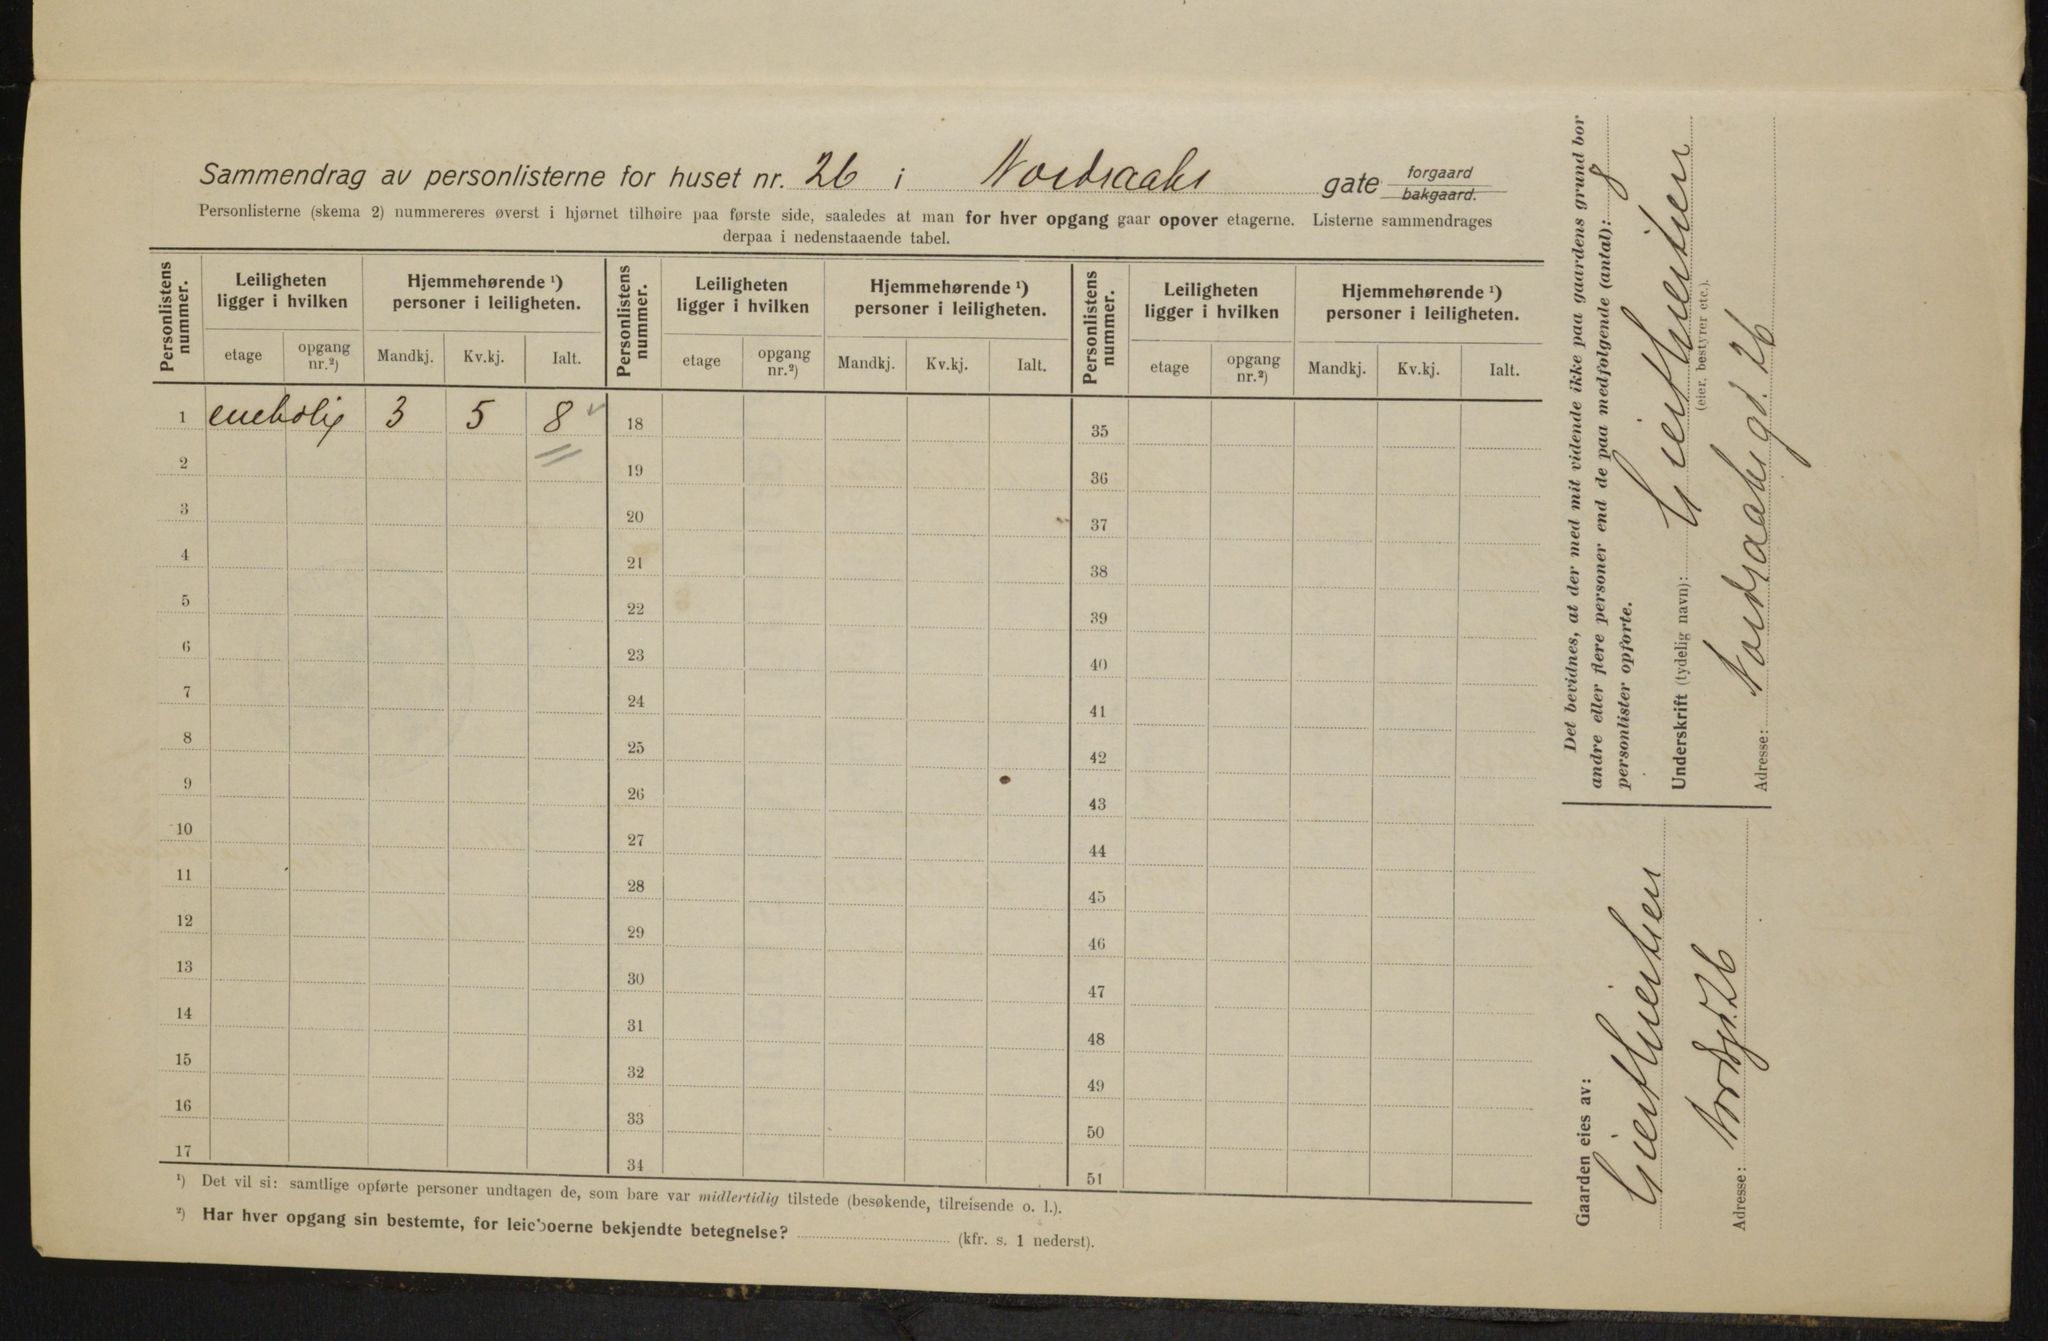 Sammendrag av personlisterne for huset nr. 26 i Nordraaks gate forgaard bakgaard.
Personlisterne (skema 2) nummereres øverst i hjørnet tilhøire paa første side, saaledes at man for hver opgang gaar opover etagerne. Listerne sammendrages
derpaa i nedenstaaende tabel.
Personlistens nummer. Leiligheten ligger i hvilken Hjemmehørende ¹) personer i leiligheten. Personlistens nummer. Leiligheten ligger i hvilken Hjemmehørende ¹) personer i leiligheten. Personlistens nummer. Leiligheten ligger i hvilken Hjemmehørende ¹) personer i leiligheten.
etage opgang nr.²) Mandkj. Kv.kj. Ialt. etage opgang nr.²) Mandkj. Kv.kj. Ialt. etage opgang nr.²) Mandkj. Kv.kj. Ialt.
1 enebolig 3 5 8 18 35
2 19 36
3 20 37
4 21 38
5 22 39
6 23 40
7 24 41
8 25 42
9 26 43
10 27 44
11 28 45
12 29 46
13 30 47
14 31 48
15 32 49
16 33 50
17 34 51
¹) Det vil si: samtlige opførte personer undtagen de, som bare var midlertidig tilstede (besøkende, tilreisende o. l.).
²) Har hver opgang sin bestemte, for leieboerne bekjendte betegnelse? (kfr. s. 1 nederst).
Det bevidnes, at der med mit vidende ikke paa gaardens grund bor
andre eller flere personer end de paa medfølgende (antal): 8
personlister opførte.
Underskrift (tydelig navn):
(eier, bestyrer etc.).
Adresse: Nordraaks gt. 26
Gaarden eies av:
Adresse: Nordgt. 26